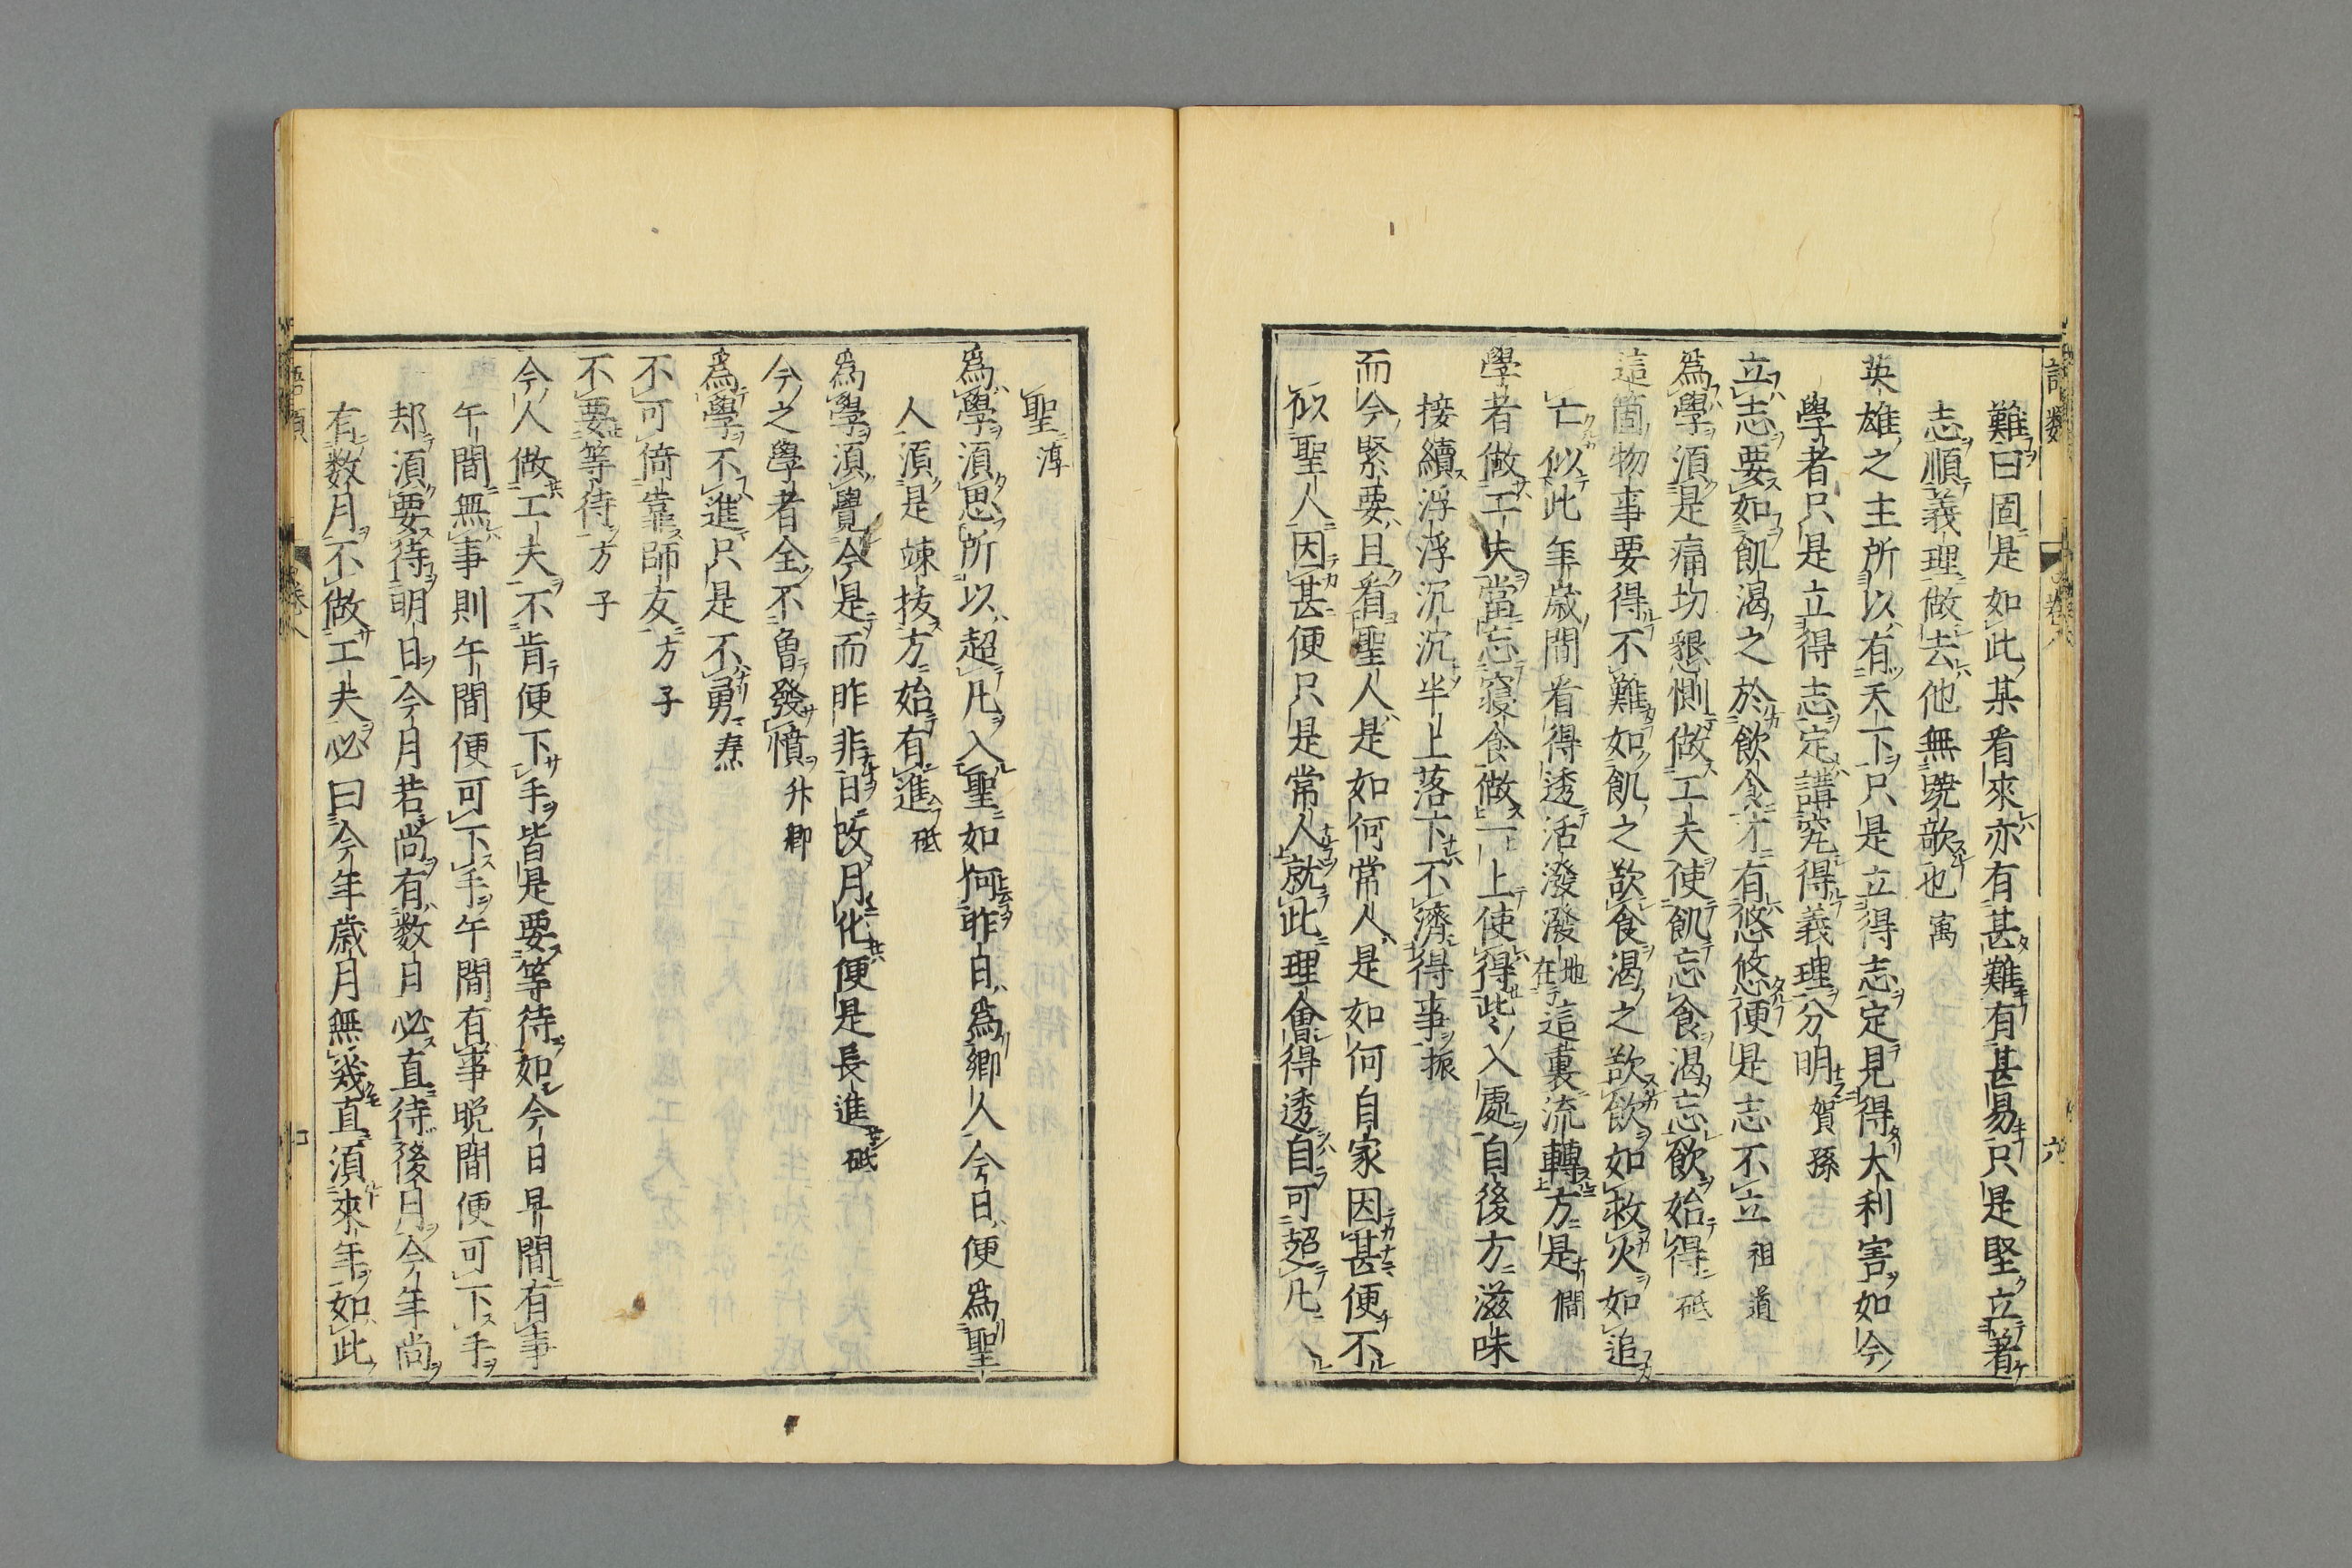 難曰固是如此某看來亦有甚難有甚易只是堅立著
志順義理做去他無蹺欹也 㝢
英雄之主所以有天下只是立得志定見得大利害如今
學者只是立得志定講究得義理分明 賀孫
立志要如飢渴之於飲食才有悠悠便是志不立 祖道
為學須是痛切懇惻做工夫使飢忘食渴忘飲始得 砥
這箇物事要得不難如飢之欲食渴之欲飲如救火如追
亡似此年歲間看得透活潑潑地在這裏流轉方是 僩
學者做工夫當忘寢食做一上使得些入處自後方滋味
接續浮浮沉沉半上落下不濟得事 振
而今緊要且看聖人是如何常人是如何自家因甚便不
似聖人因甚便只是常人就此理會得透自可超凡入
聖 淳
為學須思所以超凡入聖如何昨日為鄉人今日便為聖
人須是竦拔方始有進 砥
為學須覺今是而昨非日改月化便是長進 砥
今之學者全不曾發憤 升卿
為學不進只是不勇 燾
不可倚靠師友 方子
不要等待 方子
今人做工夫不肯便下手皆是要等待如今日早間有事
午間無事則午間便可下手午間有事晚間便可下手
却須要待明日今月若尚有数日必直待後月今年尚
有数月不做工夫必曰今年歲月無幾直須來年如此
語類
卷八
六